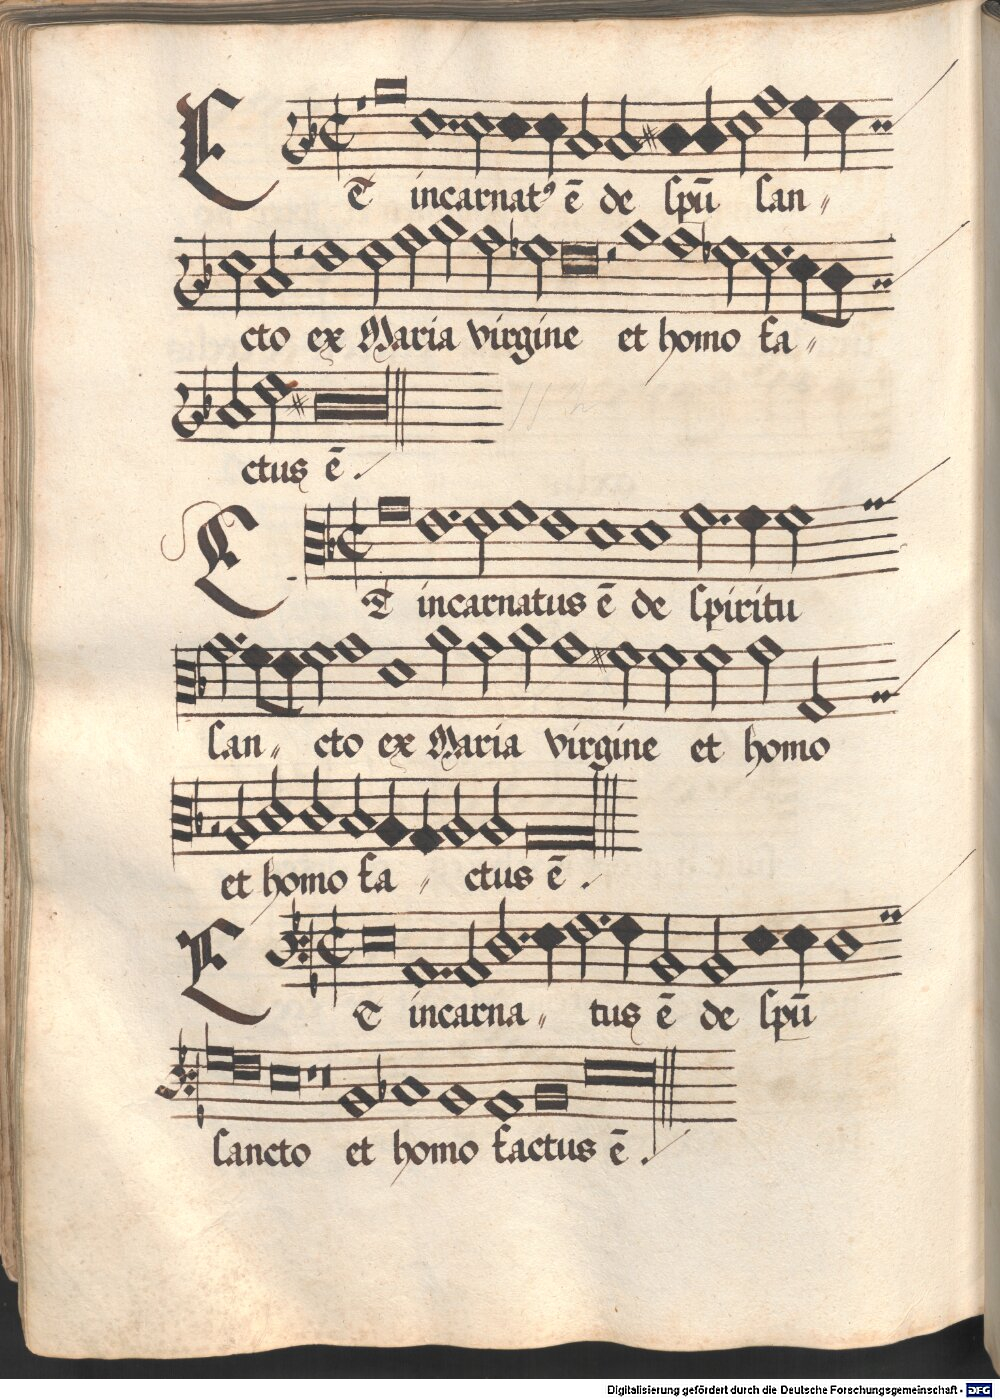 ET incarnatꝰ ē de spū san〃
cto ex Maria virgine et homo fa〃
ctus ē.
ET incarnatus ē de spiritu
san〃 cto ex Maria virgine et homo
et homo fa〃 ctus ē.
ET incarna〃 tus ē de spū
sancto et homo factus ē.
Digitalisierung gefördert durch die Deutsche Forschungsgemeinschaft - DFG